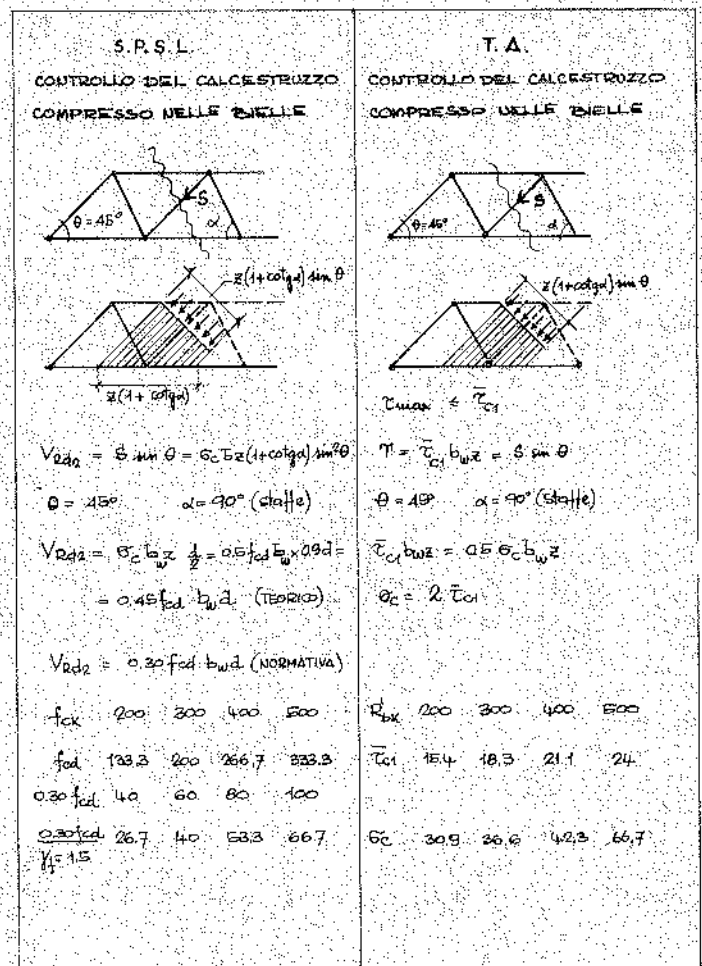 S.P.S.L.
CONTROLLO DEL CALCESTRUZZO
COMPRESSO NELLE BIELLE
S
θ=45°
α
z(1+cotgα) sin θ
z(1+cotgα)
V_Rd2 = S sin θ = σc b z(1+cotgα) sin²θ
θ = 45° α = 90° (staffe)
V_Rd2 = σc b_w z 1/2 = 0.5 fcd b_w × 0.9d =
= 0.45 fcd b_w d (TEORICO)
V_Rd2 = 0.30 fcd b_w d (NORMATIVA)
fck 200 300 400 500
fcd 133.3 200 266,7 333.3
0.30 fcd 40 60 80 100
0.30 fcd / γf=1.5 26.7 40 53.3 66.7
T.A.
CONTROLLO DEL CALCESTRUZZO
COMPRESSO NELLE BIELLE
S
θ=45°
α
z(1+cotgα) sin θ
τmax ≤ τ̄c1
T = τ̄c1 b_w z = S sin θ
θ = 45° α = 90° (staffe)
τ̄c1 b_w z = 0.5 σc b_w z
σc = 2 τ̄c1
R'bk 200 300 400 500
τ̄c1 15.4 18,3 21.1 24
σc 30.9 36,6 42,3 66,7